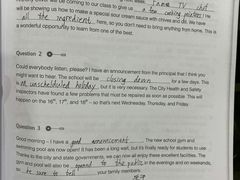 will be coming to our class to give us a few cooking pointers! He
will be showing us how to make a special sour cream sauce with chives and dill. We have
all the ingredient here, so you don't need to bring anything from home. This is
a wonderful opportunity to learn from one of the best.
Question 2
Could everybody listen, please? I have an announcement from the principal that I think you
might want to hear. The school will be closing down for a few days. This
is unscheduled holiday, but it is very necessary. The City Health and Safety
inspectors have found a few problems that must be repaired as soon as possible. This will
happen on the 16th, 17th, and 18th – so that's next Wednesday, Thursday, and Friday
Question 3
Good morning – I have a good announcement. The new school gym and
swimming pool are now open! It has been a long wait, but it's finally ready for students to use
Thanks to the city and state governments, we can now all enjoy these excellent facilities. The
gym and pool will also be opened to the public in the evenings and on weekends,
so be sure to tell your family members.